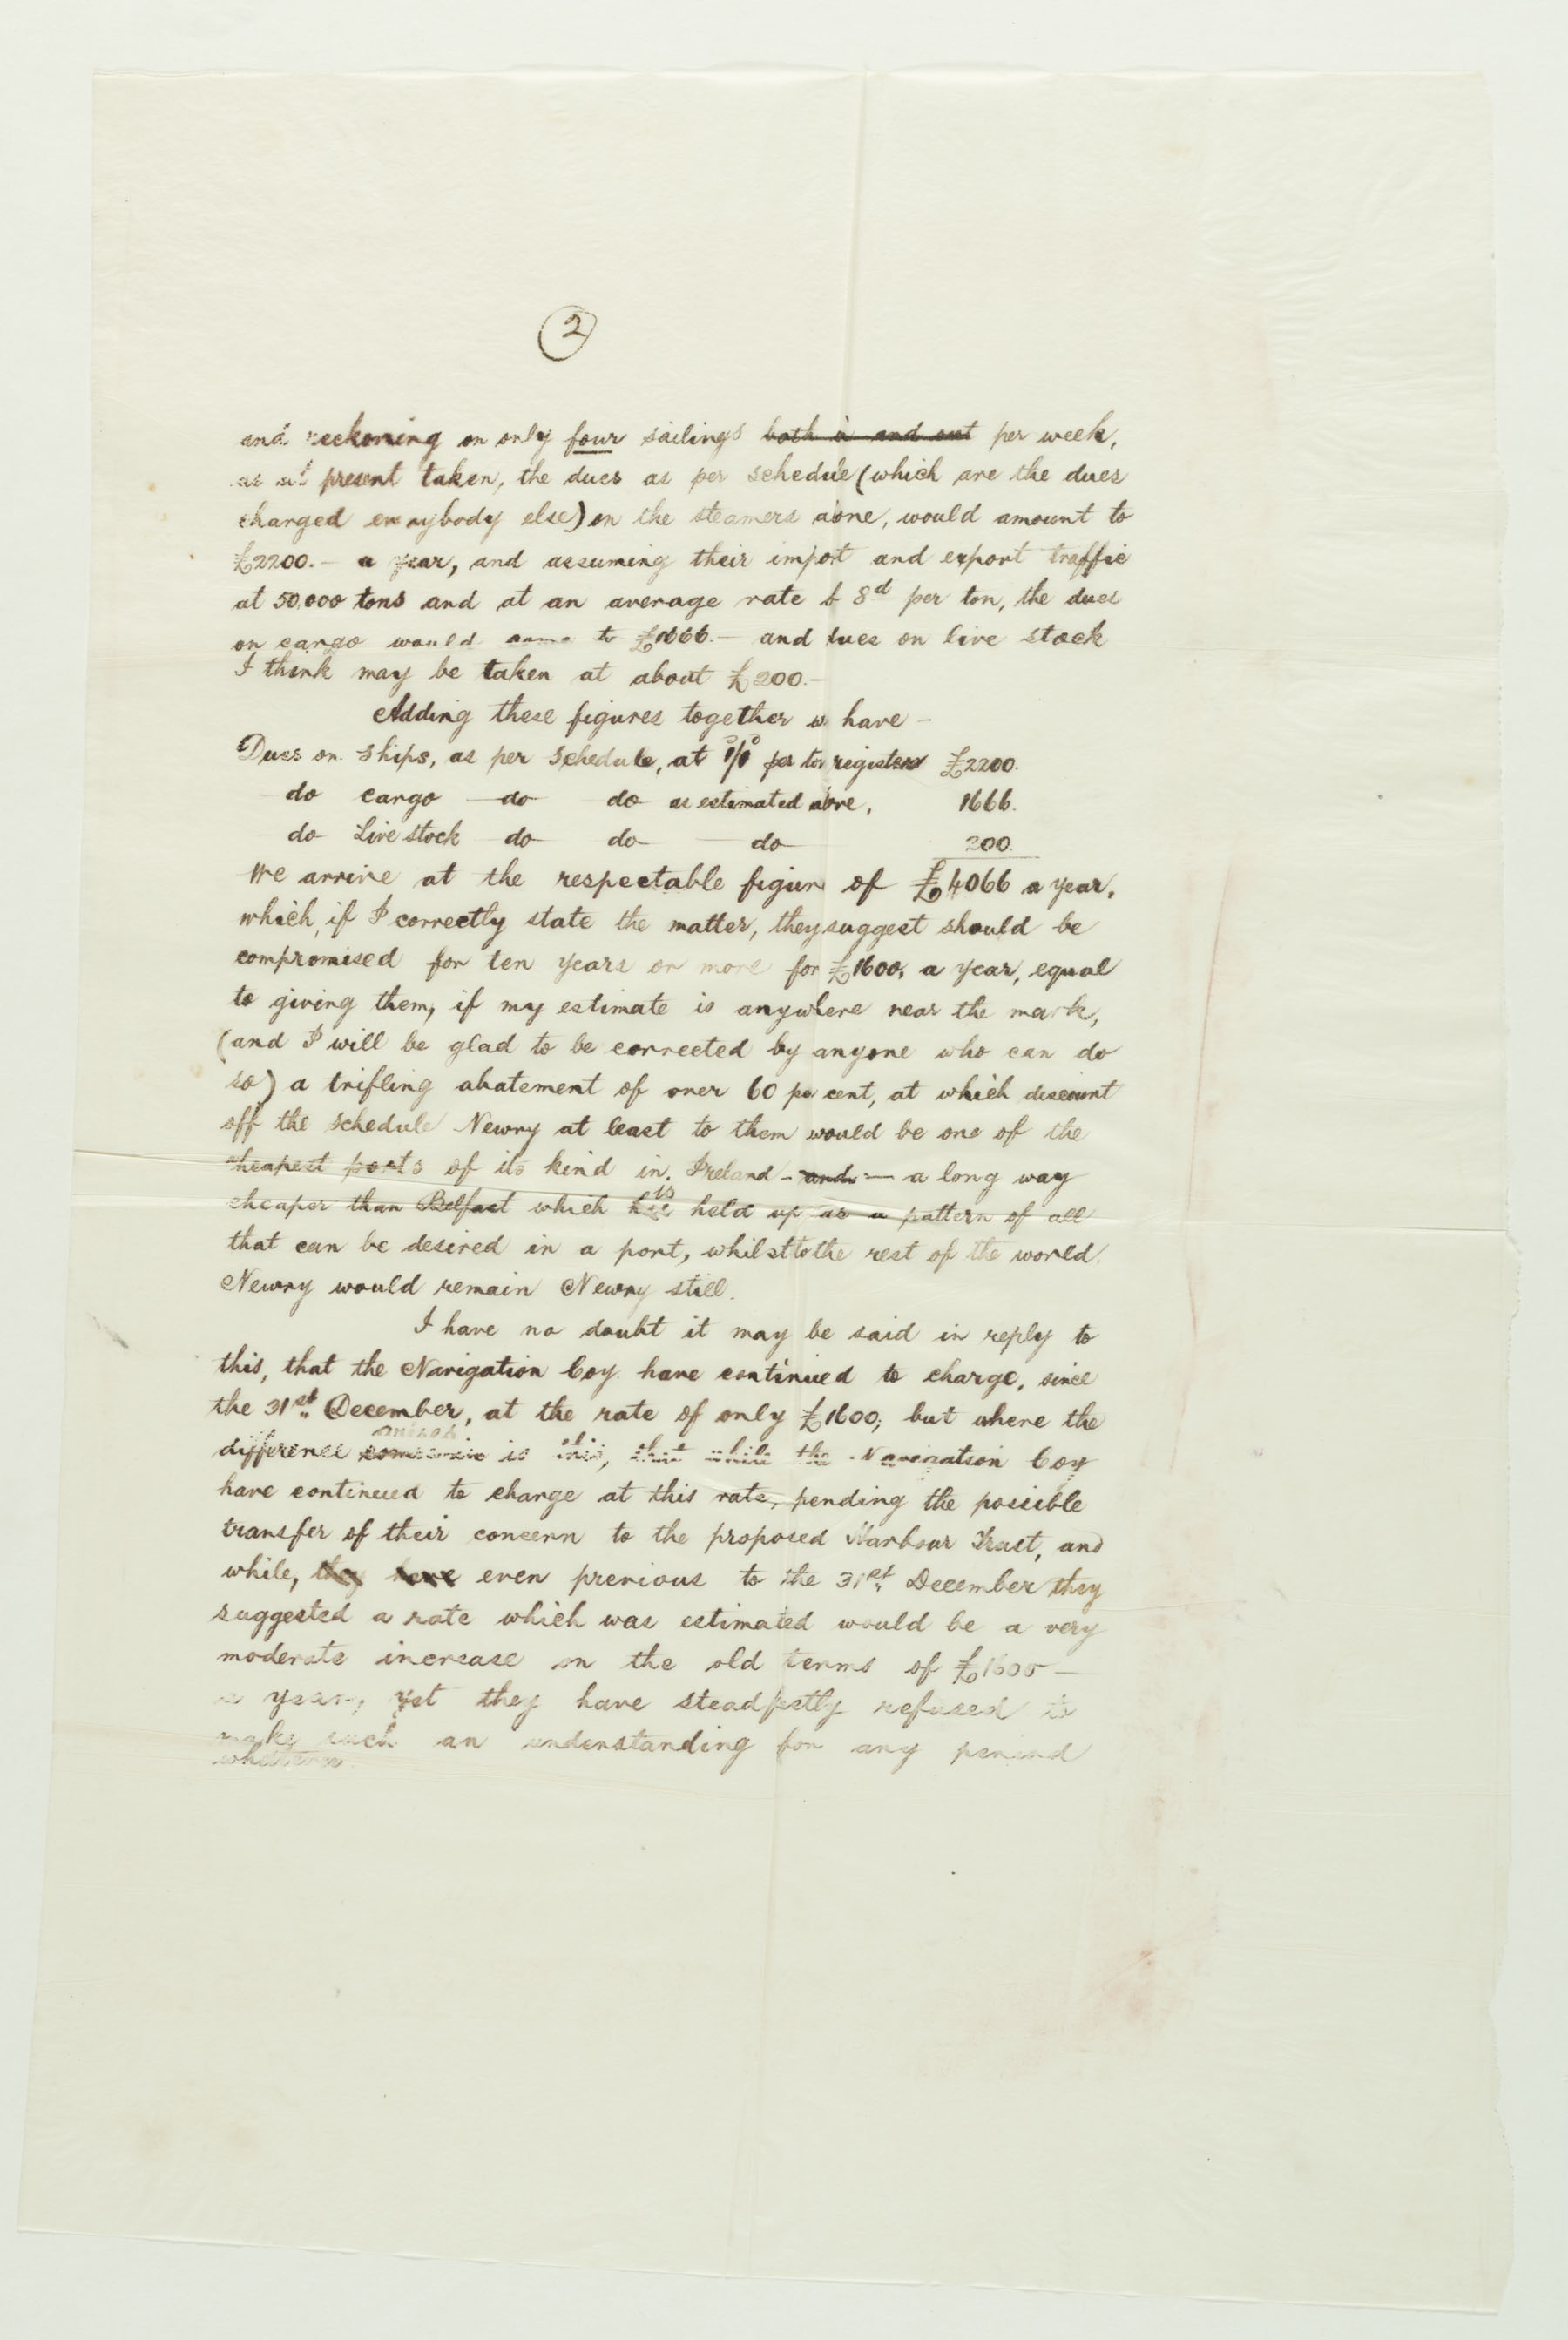 2
and reckoning on only four sailings both in and out per week,
as at present taken, the dues as per schedule (which are the dues
charged everybody else) on the steamers alone, would amount to
£2200.- a year, and assuming their import and export traffic
at 50,000 tons and at an average rate of 8d per ton, the dues
on cargo would come to £1666.- and dues on live stock
I think may be taken at about £200.-
Adding these figures together we have -
Dues on Ships, as per schedule, at per ton register £2200.
do cargo do do as estimated above, 1666.
do Live stock do do do 200.
We arrive at the respectable figure of £4066 a year,
which, if I correctly state the matter, they suggest should be
compromised for ten years or more for £1600, a year, equal
to giving them, if my estimate is anywhere near the mark,
(and I will be glad to be corrected by anyone who can do
so) a trifling abatement of over 60 per cent, at which discount
off the schedule Newry at least to them would be one of the
cheapest ports of its kind in Ireland - and - a long way
cheaper than Belfast which is held up as a pattern of all
that can be desired in a port, whilst to the rest of the world
Newry would remain Newry still.
I have no doubt it may be said in reply to
this, that the Navigation Coy. have continued to charge, since
the 31st December, at the rate of only £1600; but where the
difference arises is this, that while the Navigation Coy
have continued to charge at this rate, pending the possible
transfer of their concern to the proposed Harbour Trust, and
while, they have even previous to the 31st December they
suggested a rate which was estimated would be a very
moderate increase on the old terms of £1600 -
a year, yet they have steadfastly refused to
make such an understanding for any period
whatever.